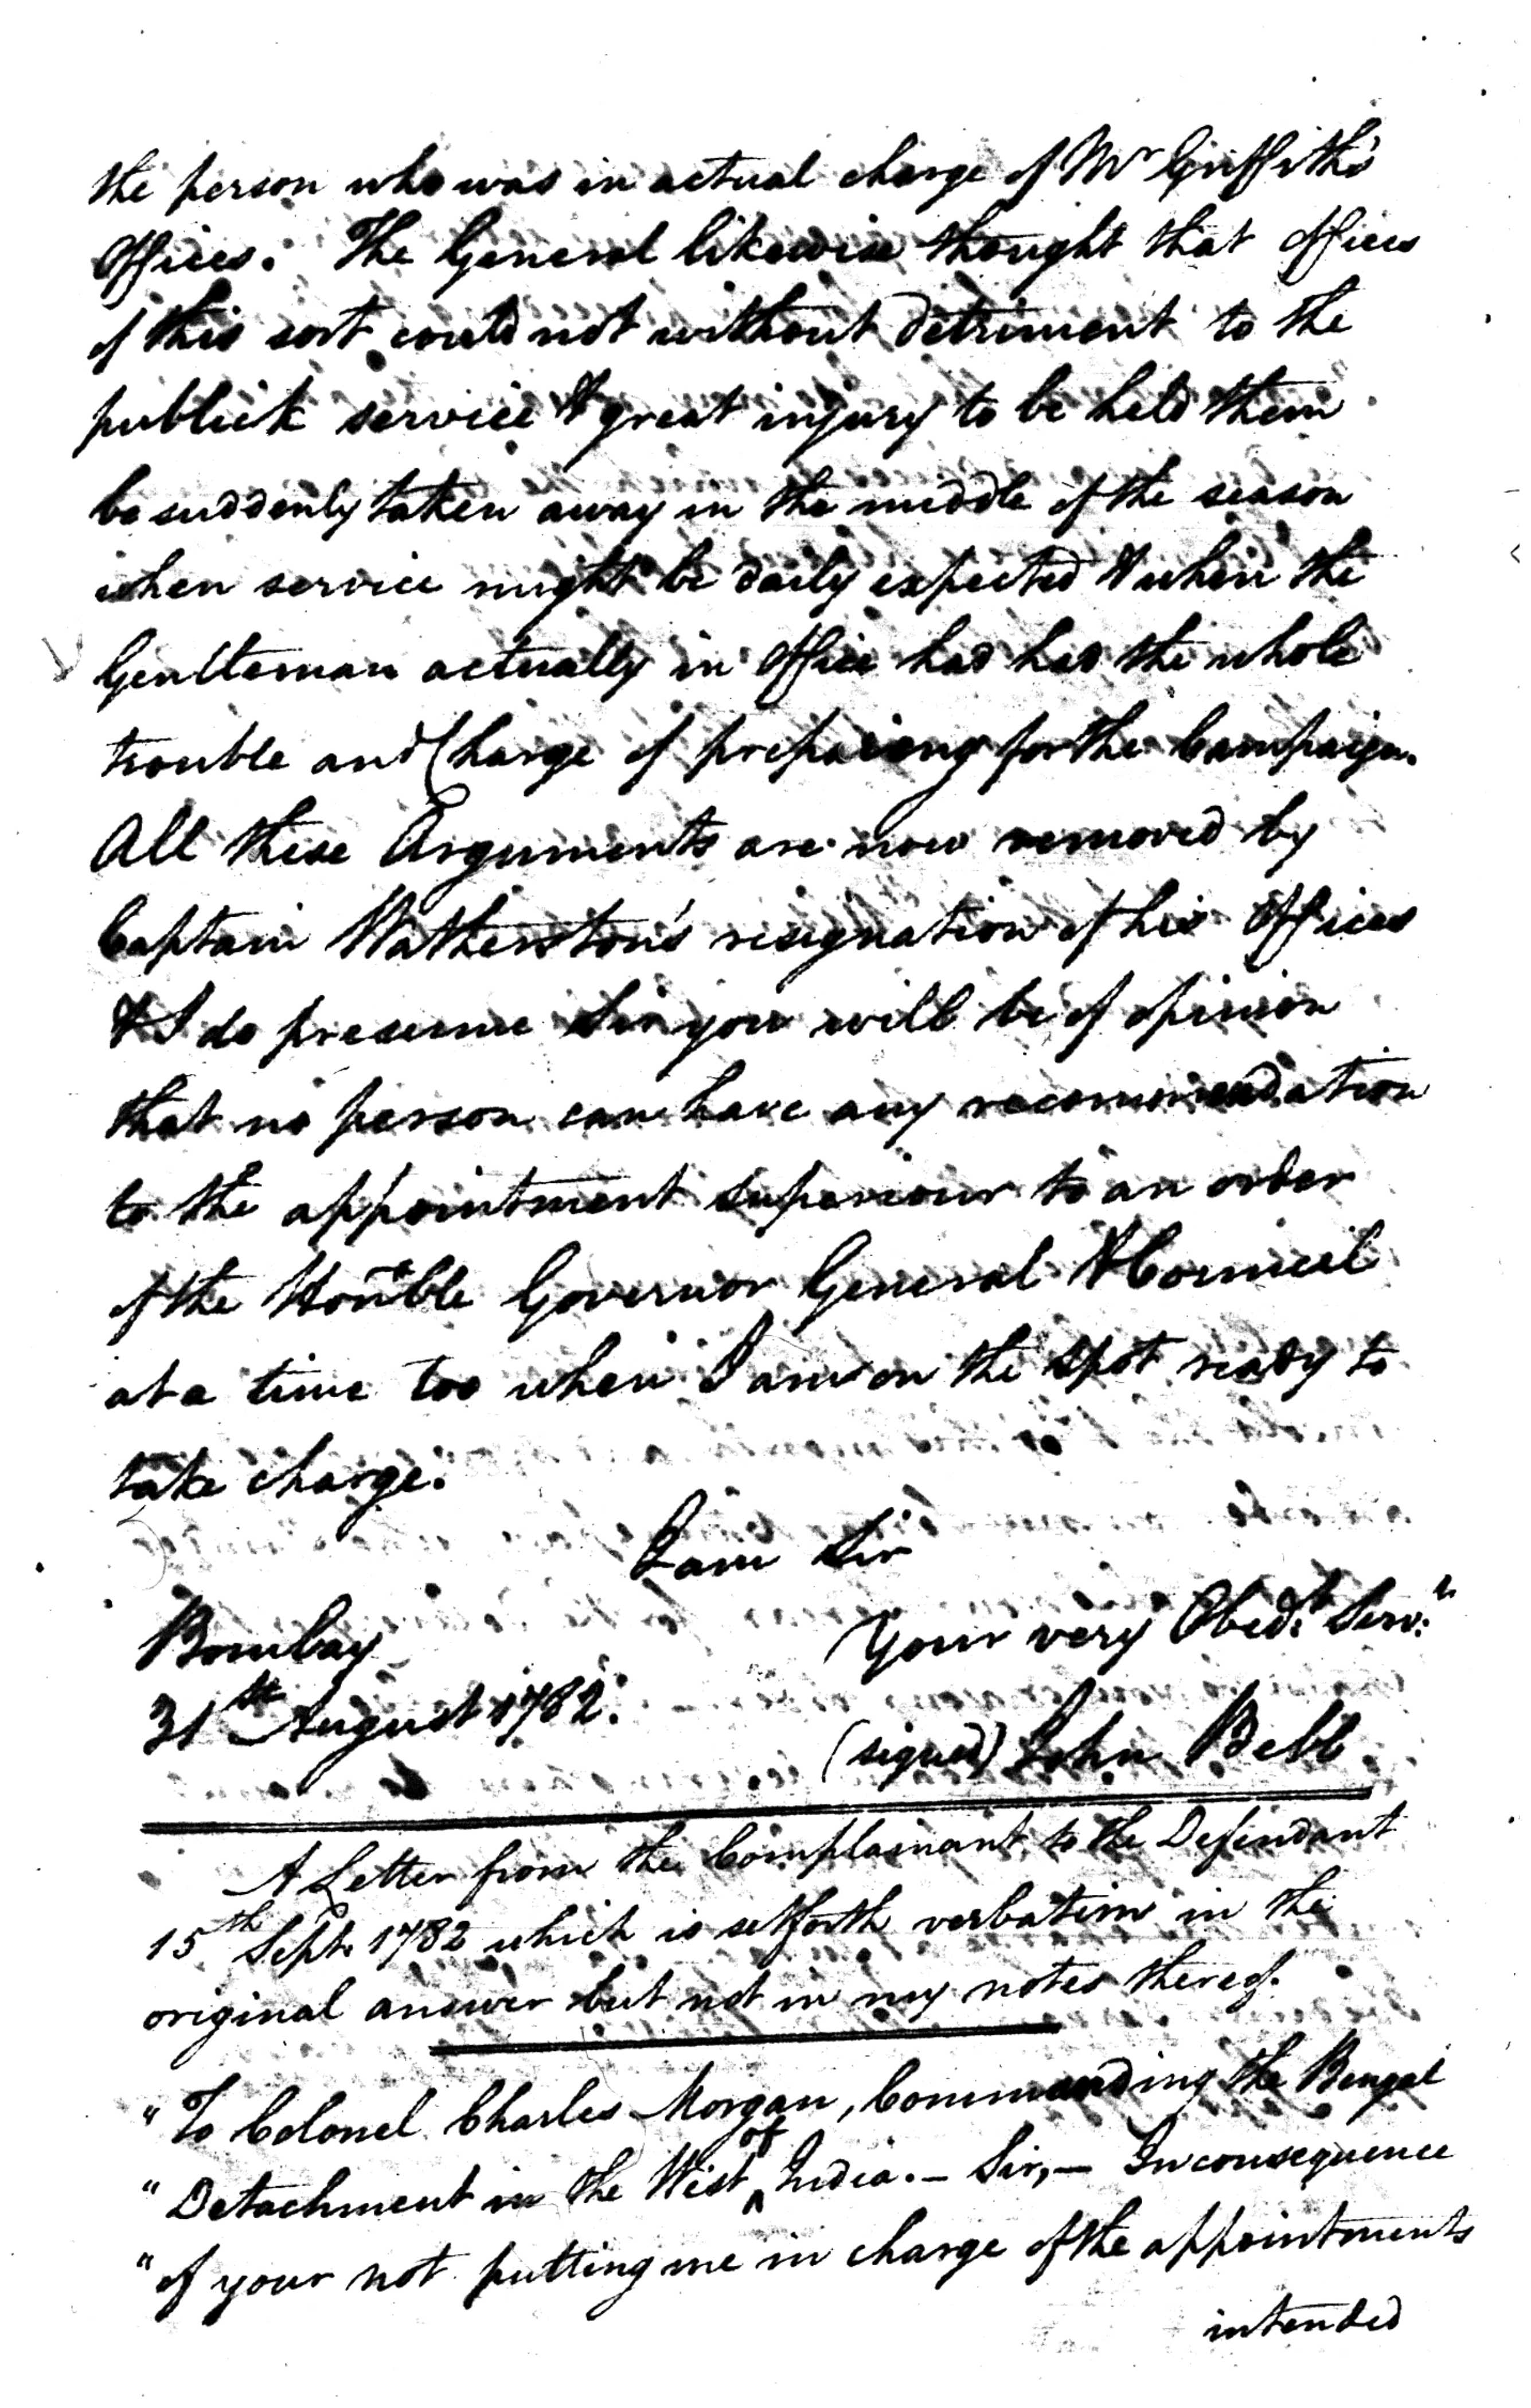 the person who was in actual charge of Mr Griffith's
Offices. The General likewise thought that offices
of this sort could not without detriment to the
publick service & great injury to be held them
be suddenly taken away in the middle of the season
when service might be daily expected & when the
Gentleman actually in Office had had the whole
trouble and Charge of preparing for the Campaign.
All these Arguments are now removed by
Captain Watherston's resignation of his Offices
& I do presume Sir you will be of opinion
that no person can have any recommendation
to the appointment superiour to an order
of the Honble Governor General & Council
at a time too when I am on the spot ready to
take charge.
I am Sir
Bombay
Your very Obedt. Servt.
31st August 1782.
(signed) John Bebb
A Letter from the Complainant to the Defendant
15th Sept. 1782 which is set forth verbatim in the
original answer but not in my notes thereof.
"To Colonel Charles Morgan, Commanding the Bengal
"Detachment in the West of India. – Sir, – In consequence
"of your not putting me in charge of the appointments
intended